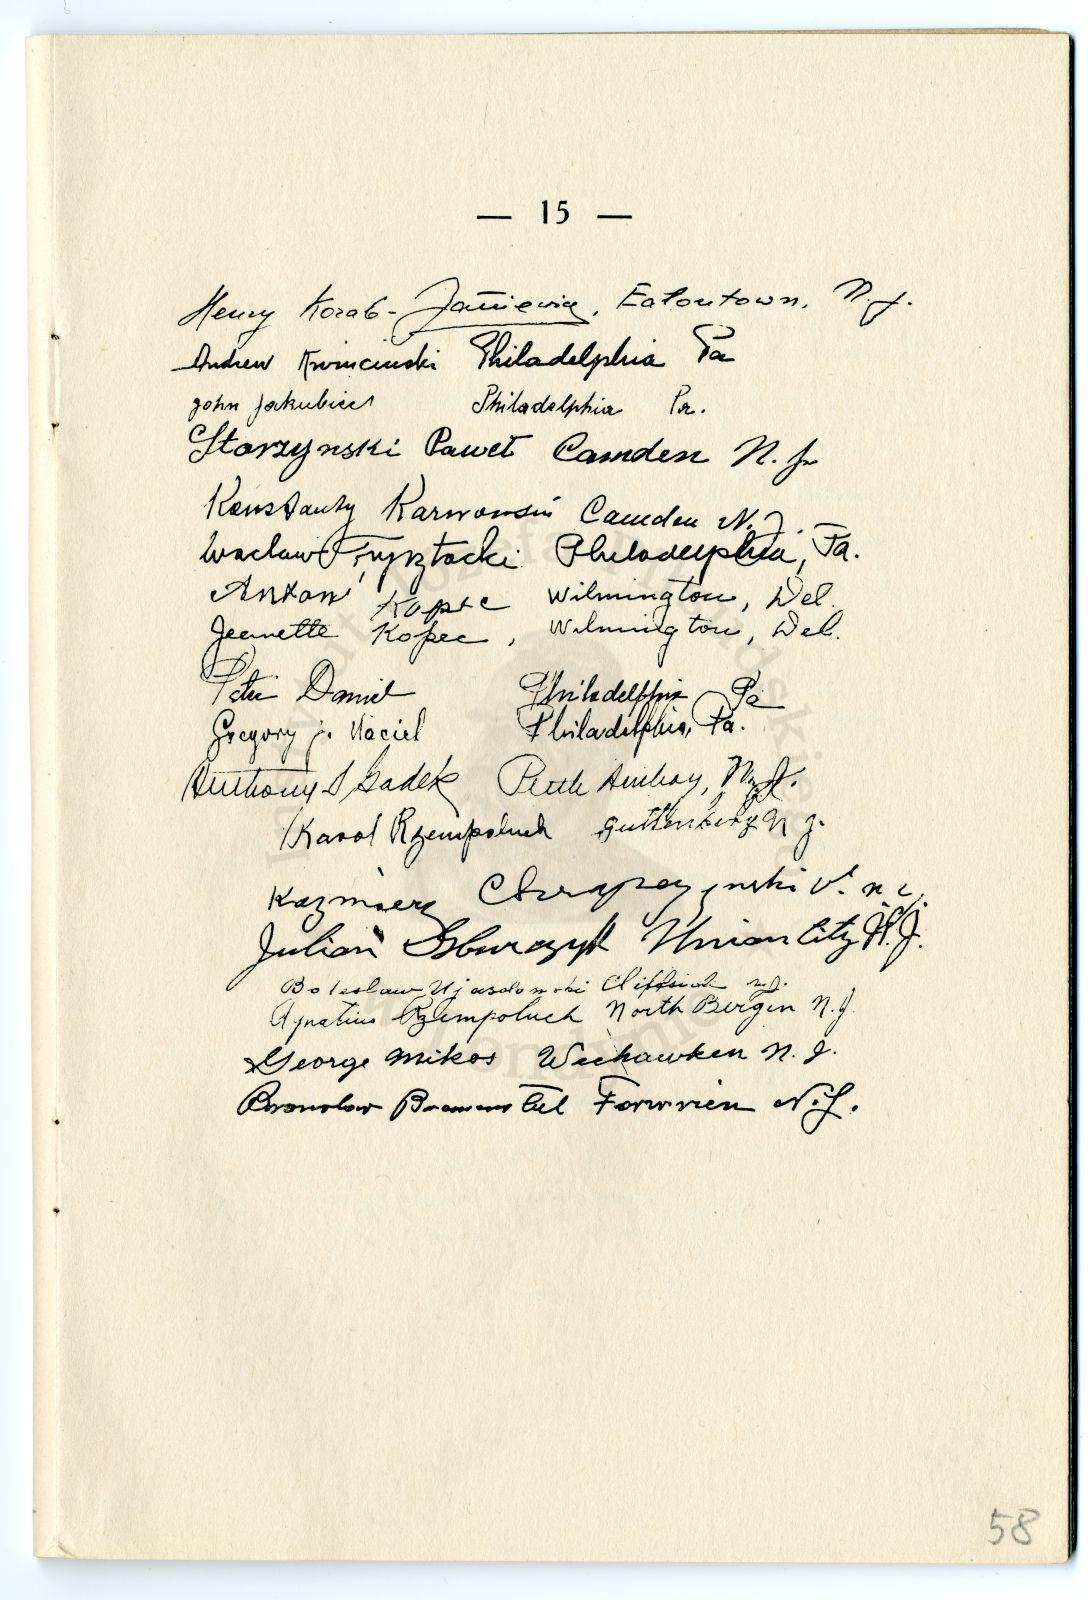 — 15 —
Henry Korab-Janiewicz, Eatontown, N.J.
Andrew Kwiecinski Philadelphia Pa
John Jakubiec Philadelphia Pa.
Starzynski Paweł Camden N.J.
Konstanty Karwowski Camden N.J.
Wacław Frysztacki Philadelphia, Pa.
Antoni Kopec Wilmington, Del.
Jeanette Kopec, Wilmington, Del.
Peter Daniel Philadelphia Pa
Gregory J. Maciel Philadelphia, Pa.
Anthony S. Gadek Perth Amboy, N.J.
Karol Rzempoluch Guttenberg N.J.
Kazmierz N.J.
Julian Union City N.J.
Bolesław Ujazdowski Cliffside N.J.
Ignatius Rzempoluch North Bergen N.J.
George Mikos Weehawken N.J.
Bronołow N.J.
58